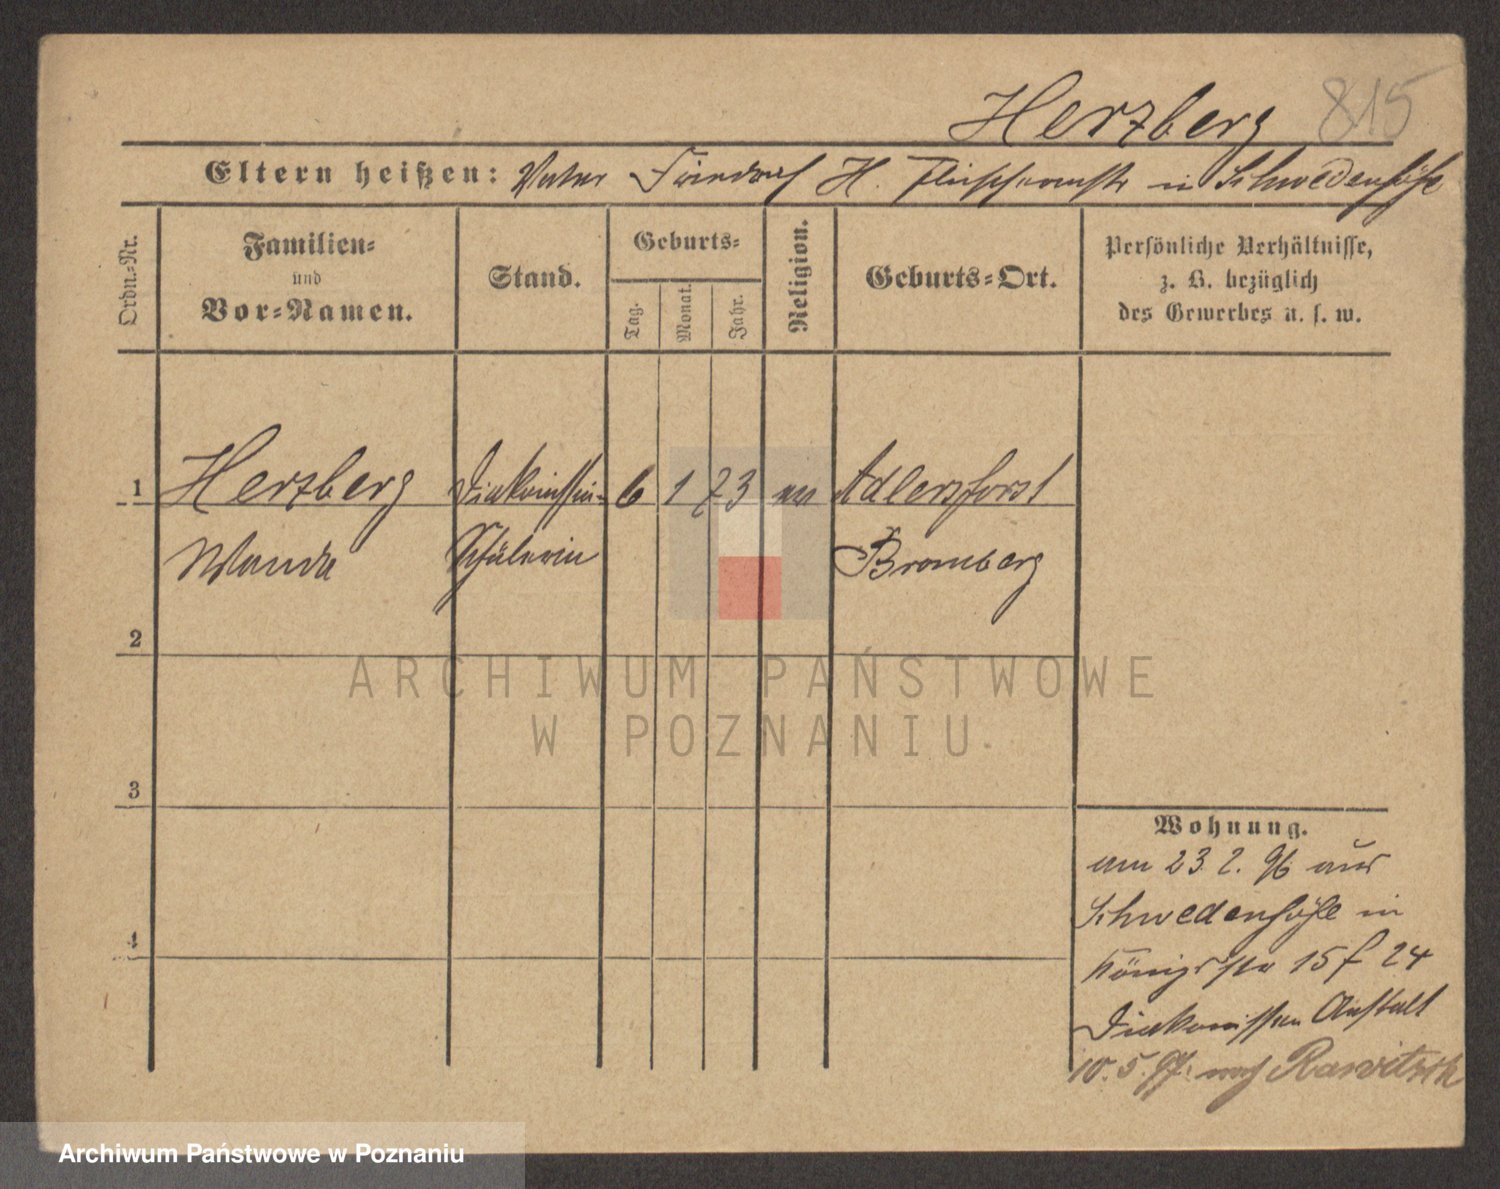 Herzberg 815
Eltern heißen: Vater Friedrich H. Fleischermstr in Schwedenhöhe
Ordn.-Nr.
Familien-
und
Vor-Namen.
Stand.
Geburts-
Tag.
Monat.
Jahr.
Religion.
Geburts-Ort.
Persönliche Verhältnisse,
z. B. bezüglich
des Gewerbes u. s. w.
1 Herzberg Diakonissin- 6 1 73 ev Adlershorst
Wanda Schülerin Bromberg
2
3
4
Wohnung.
am 23 2. 96 aus
Schwedenhöhe in
Königsstr 15 f 24
Diakonissen Anstalt
10. 5. 97. nach Rawitsch
ARCHIWUM PAŃSTWOWE
W POZNANIU
Archiwum Państwowe w Poznaniu